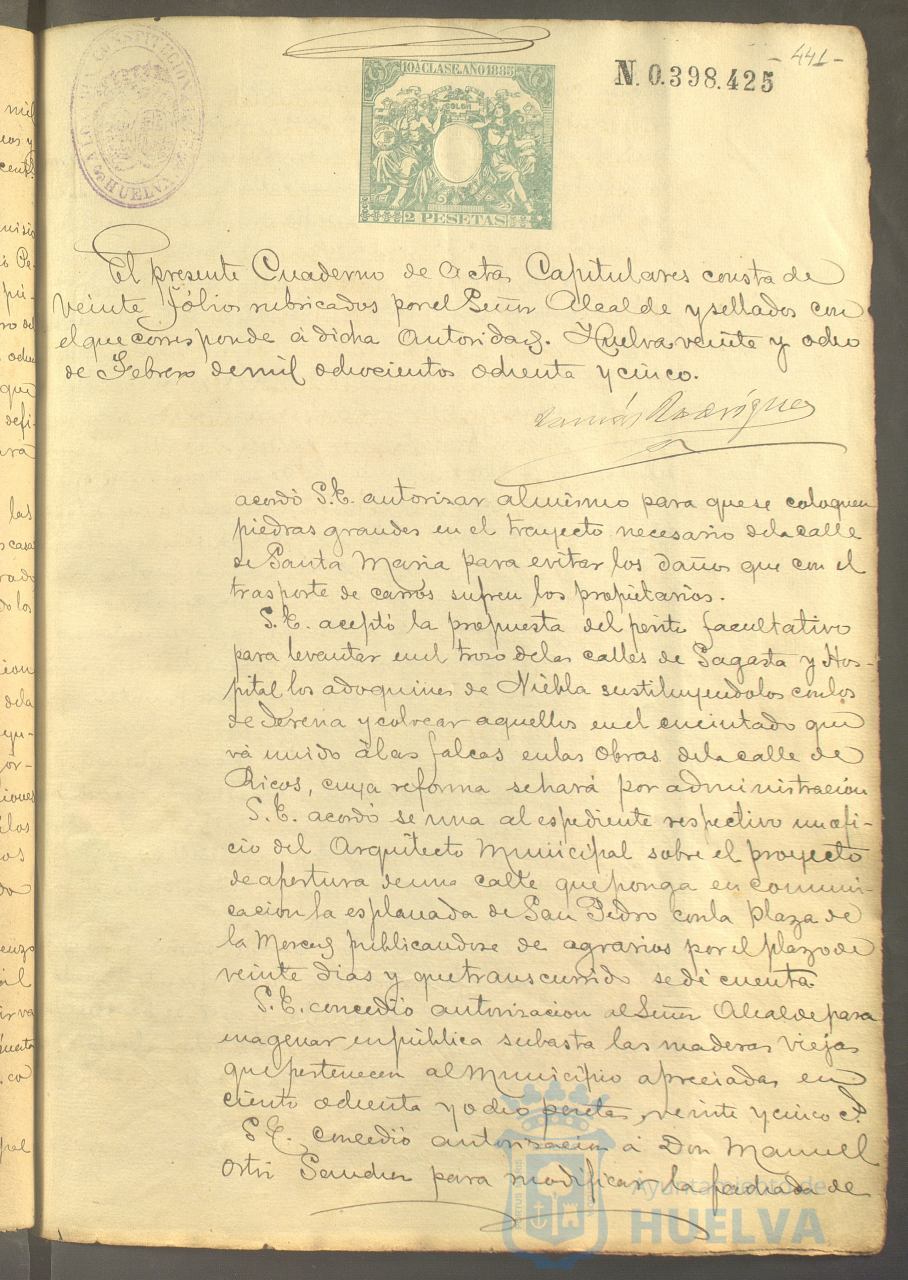 -441-
ALCALDIA CONSTITUCIONAL DE HUELVA
10ª CLASE. AÑO 1885
N. 0.398.425
COLON
2 PESETAS
El presente Cuaderno de Actas Capitulares consta de
veinte fólios rubricados por el Señor Alcalde y sellados con
el que corresponde á dicha Autoridad. Huelva veinte y ocho
de Febrero de mil ochocientos ochenta y cinco.
Tomás Rodríguez
acordó S.E. autorizar al mismo para que se coloquen
piedras grandes en el trayecto necesario de la calle
de Santa Maria para evitar los daños que con el
trasporte de carros sufren los propietarios.
S.E. aceptó la propuesta del perito facultativo
para levantar en el trozo de las calles de Sagasta y Hos-
pital los adoquines de Niebla sustituyendolos con los
de Gerena y colocar aquellos en el encintado que
vá unido á las falcas en las obras de la calle de
Ricos, cuya reforma se hará por administracion
S.E. acordó se una al espediente respectivo un ofi-
cio del Arquitecto Municipal sobre el proyecto
de apertura de una calle que ponga en comuni-
cacion la esplanada de San Pedro con la Plaza de
la Merced publicandose de agravios por el plazo de
veinte dias y que transcurrido se dé cuenta.
S.E. concedió autorizacion al Señor Alcalde para
enagenar en pública subasta las maderas viejas
que pertenecen al Municipio apreciadas en
ciento ochenta y ocho pesetas, veinte y cinco c.
S.E. concedió autorizacion á Don Manuel
Ortiz Sanchez para modificar la fachada de
Ayuntamiento de
HUELVA